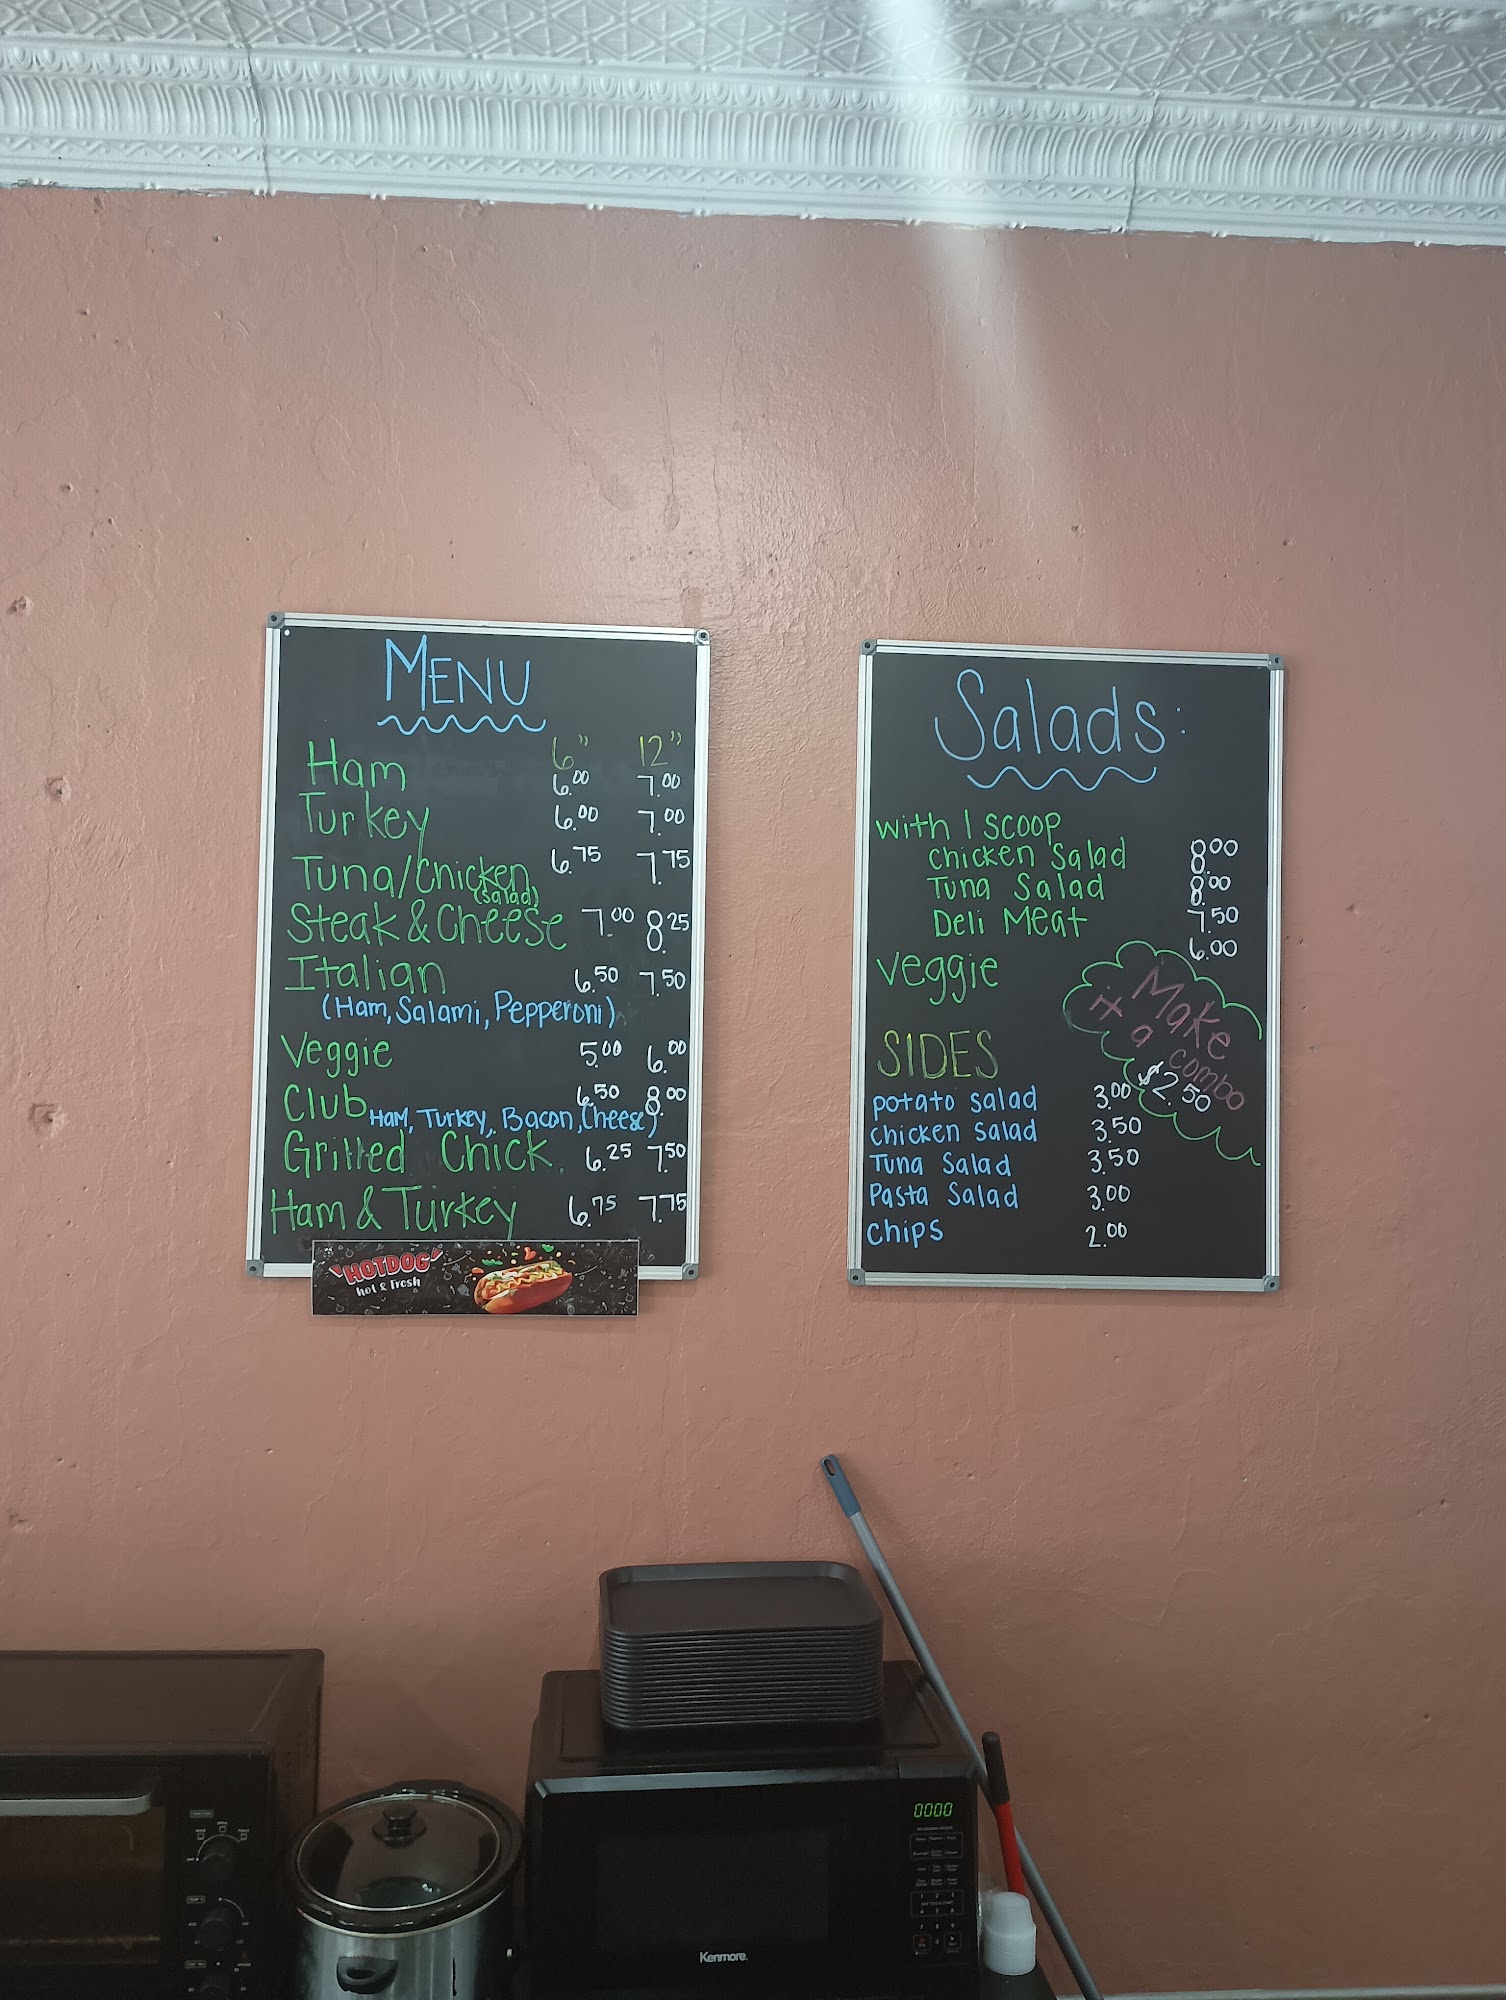 MENU
6" 12"
Ham 6.00 7.00
Turkey 6.00 7.00
Tuna/Chicken 6.75 7.75
(salad)
Steak & Cheese 7.00 8.25
Italian 6.50 7.50
(Ham, Salami, Pepperoni)
Veggie 5.00 6.00
Club 6.50 8.00
Ham, Turkey, Bacon, Cheese)
Grilled Chick. 6.25 7.50
Ham & Turkey 6.75 7.75
"HOTDOG"
hot & fresh
Salads:
with 1 scoop
Chicken Salad 8.00
Tuna Salad 8.00
Deli Meat 7.50
Veggie 6.00
Make
it a
combo
$2.50
SIDES
potato salad 3.00
chicken salad 3.50
Tuna Salad 3.50
Pasta Salad 3.00
chips 2.00
0000
Kenmore